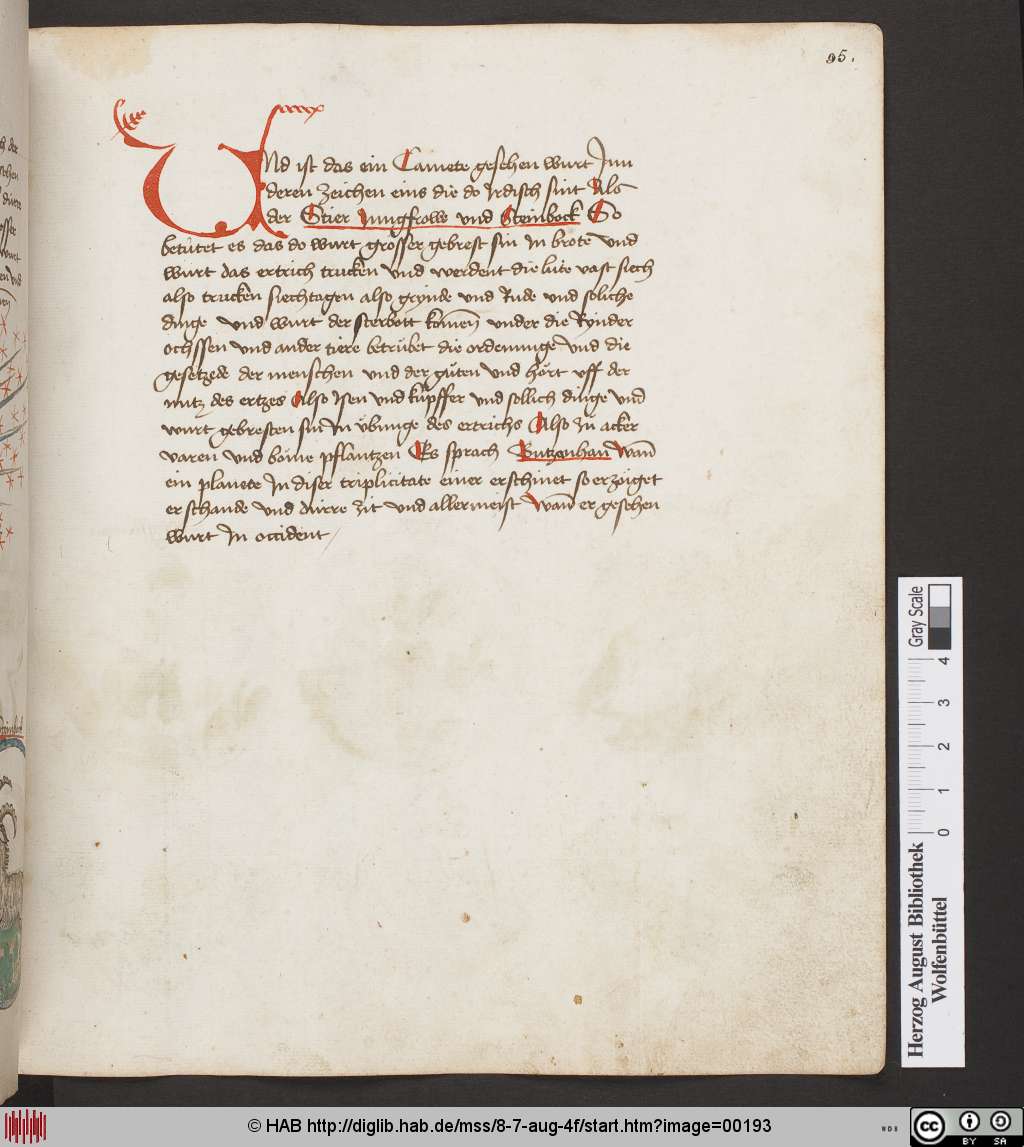 95.
Und ist das ein Camete gesehen wurt Inn
deren zeichen eins die do Irdisch sint Als
der Stier Jungfrowe und Steinbock So
betütet es das do wurt grosser gebrest sin In brote und
wurt das ertrich trucken und werdent die lüte vast siech
also trucken siechtagen also grynde und Rude und soliche
dinge und wurt der sterbott komen under die Rynder
ochssen und ander tiere betrübet die ordenunge und die
gesetzede der menschen und der gůten und hört uff der
nutz des ertzes Also Isen und kupffer und sollich dinge und
wurt gebresten sin In übunge des ertrichs Also zů acker
varen und böme pflantzen Es sprach Butzenhan wan
ein planete In diser triplicitate einer erschinet so erzöiget
er schande und dürre zit und allermeist wan er gesehen
wurt In occident
Gray Scale
0 1 2 3 4
Herzog August Bibliothek
Wolfenbüttel
© HAB http://diglib.hab.de/mss/8-7-aug-4f/start.htm?image=00193
WDB
cc BY SA